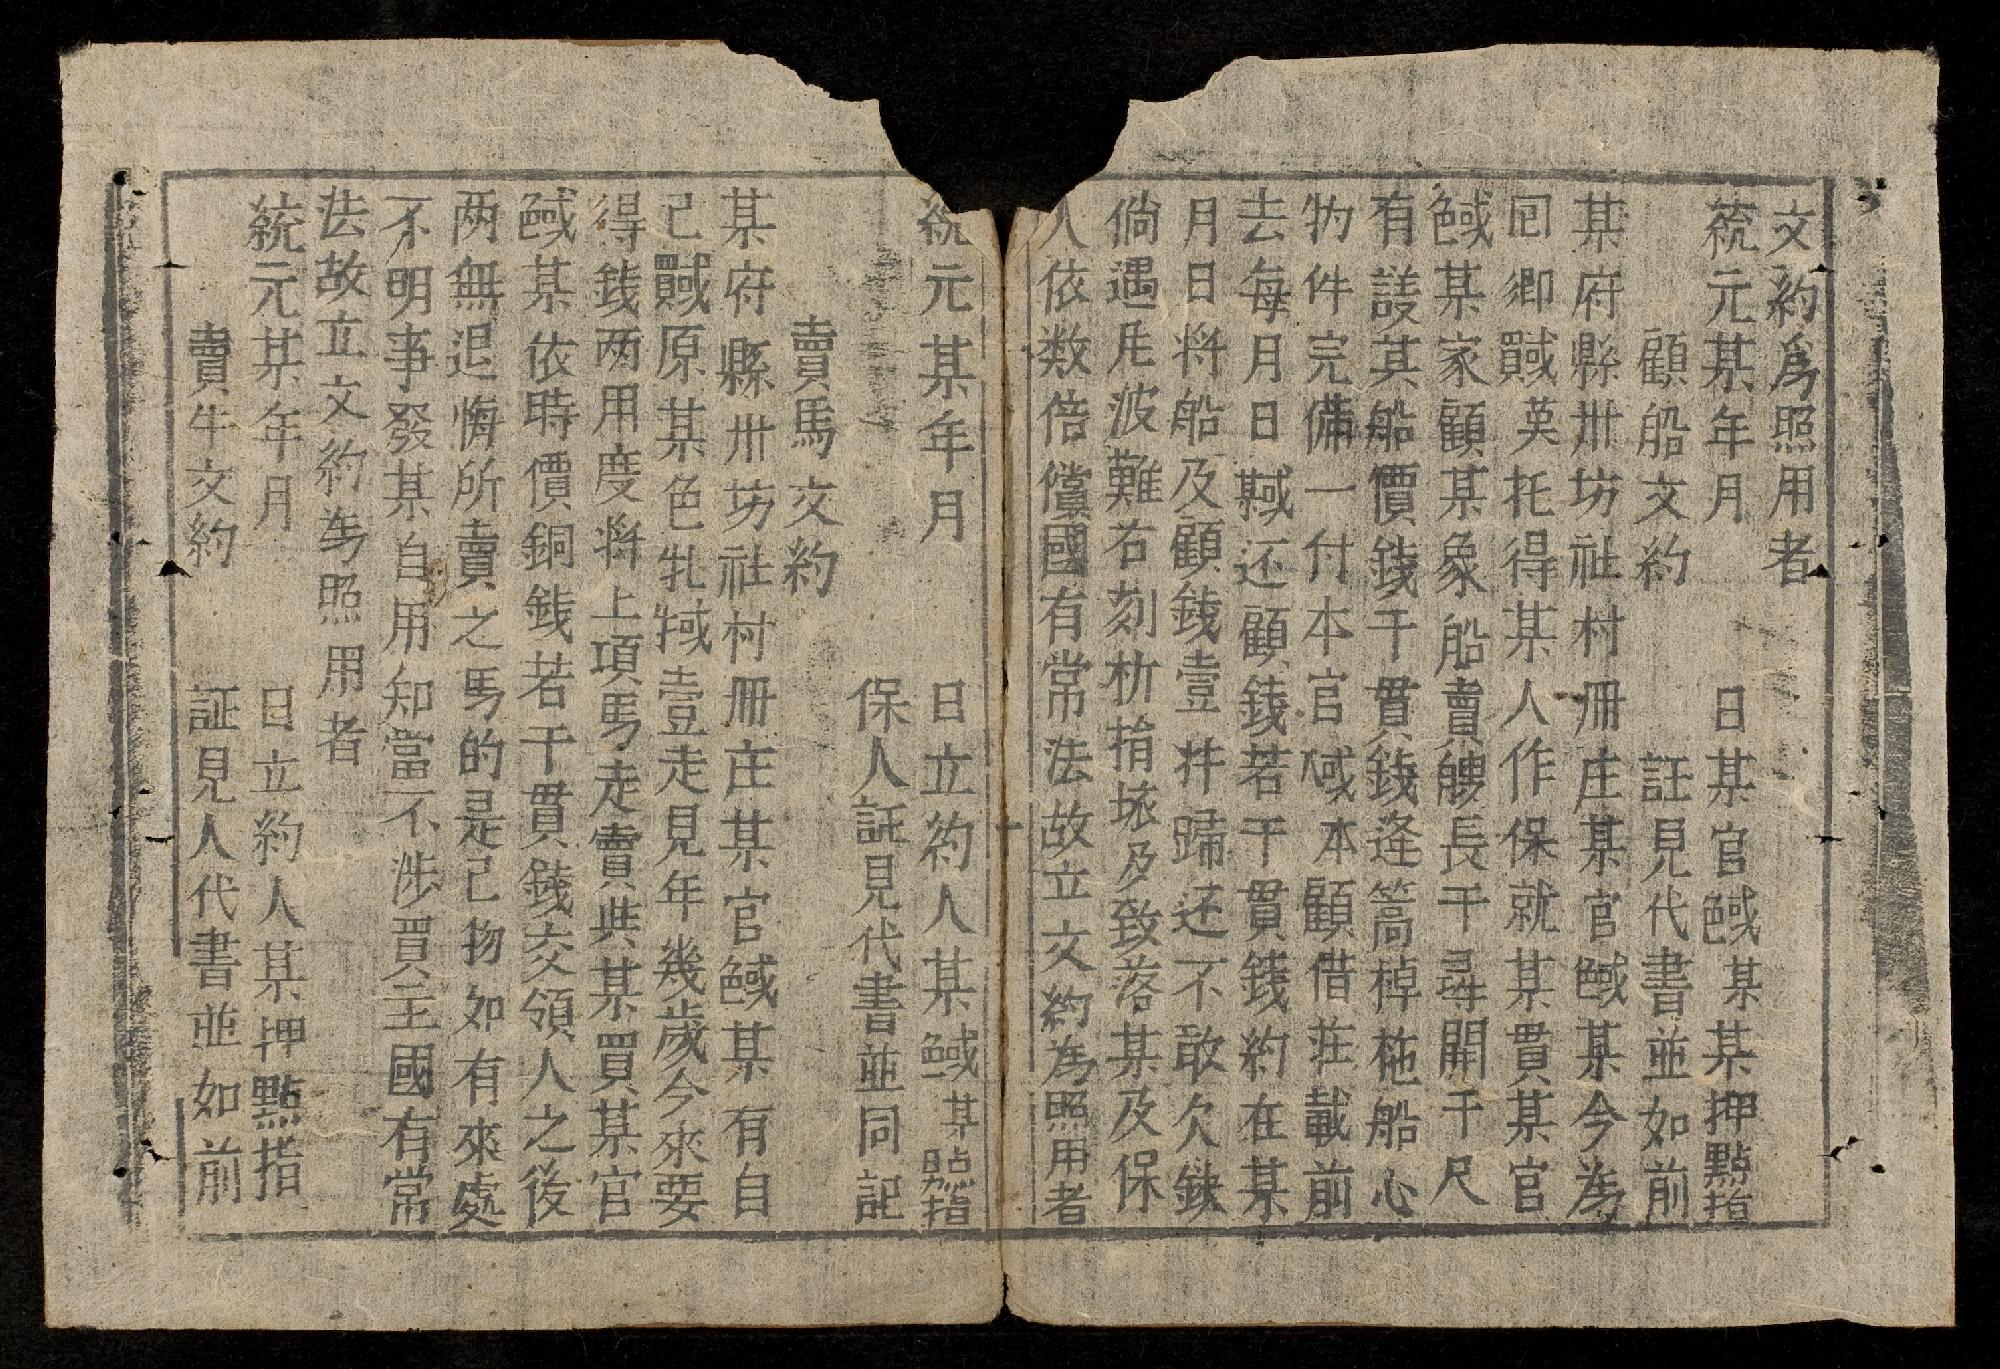 文約爲照用者
統元某年月　日某官某某押點指
顧船文約　証見代書並如前
某府縣卅坊社村冊庄某官某今為
囘鄉托得某人作保就某貫某官
某家顧某象船賣艘長干尋開干尺
有議其船價錢干貫錢逢篙棹柂船心
物件完備一付本官本顧借莊載前
去每月日还顧錢若干貫錢約在某
月日将船及顧錢壹并歸还不敢欠鈌
倘遇風波難右刻析及致落某及保
人依数倍償國有常法故立文約為照用者
統元某年月　日立約人某某點指
保人証見代書並同記
賣馬文約
某府縣卅坊社村冊庄某官某有自
己原某色牝壹走見年幾歲今來要
得銭两用度将上項馬走賣典某買某官
某依時價銅銭若干貫銭交領人之後
两無退悔所賣之馬的是己物如有來處
不明事發某自用知當不涉買主國有常
法故立文約為照用者
統元某年月　日立約人某押點指
賣牛文約　証見人代書並如前